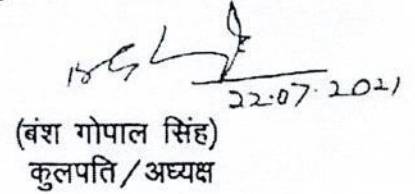 22.07.2021
(बंश गोपाल सिंह)
कुलपति/अध्यक्ष